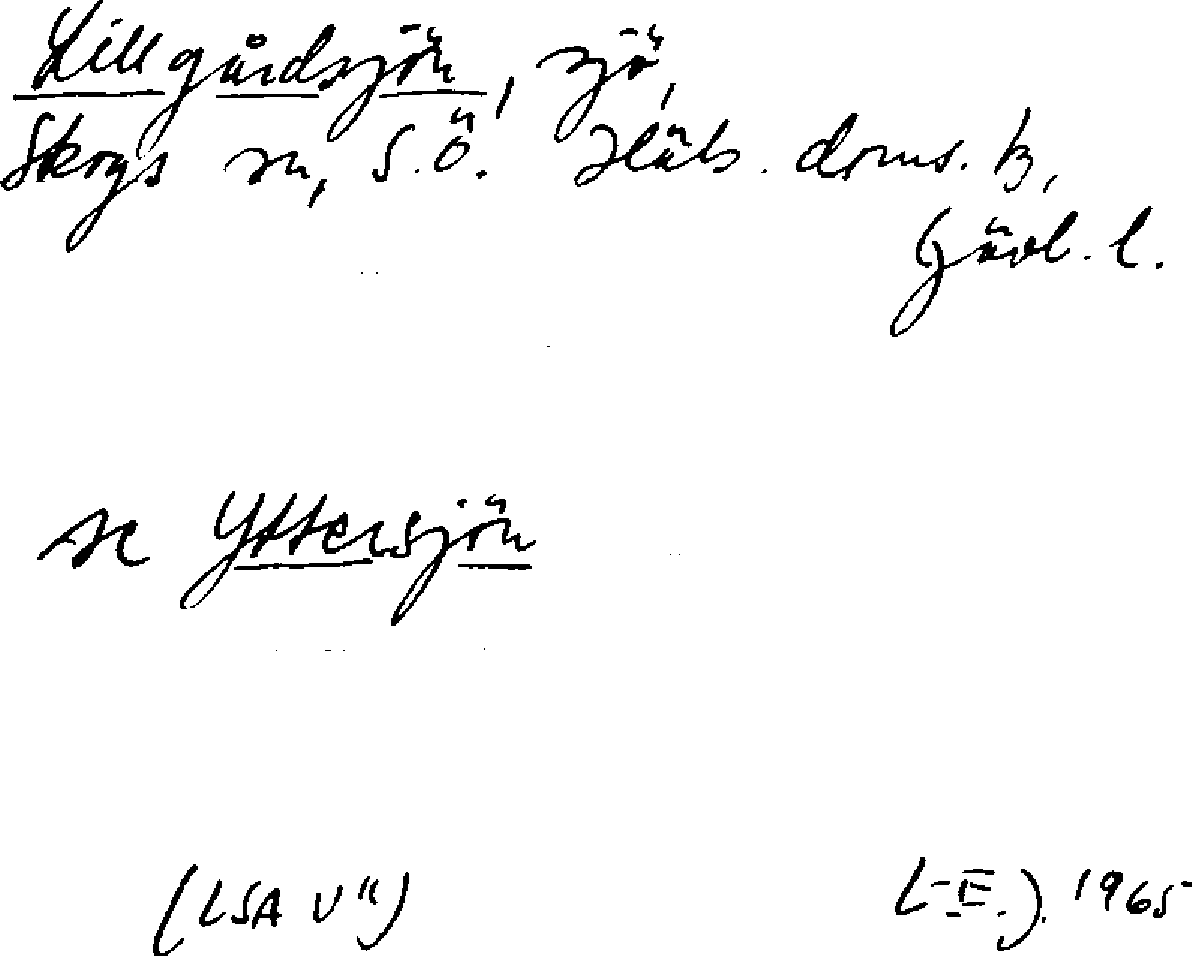 Lillgårdsjön, sjö,
Skogs sn, S.Ö. Häls. doms. h,
Gävl. l.
se Yttersjön
(LSA V")
L-E.J. 1965